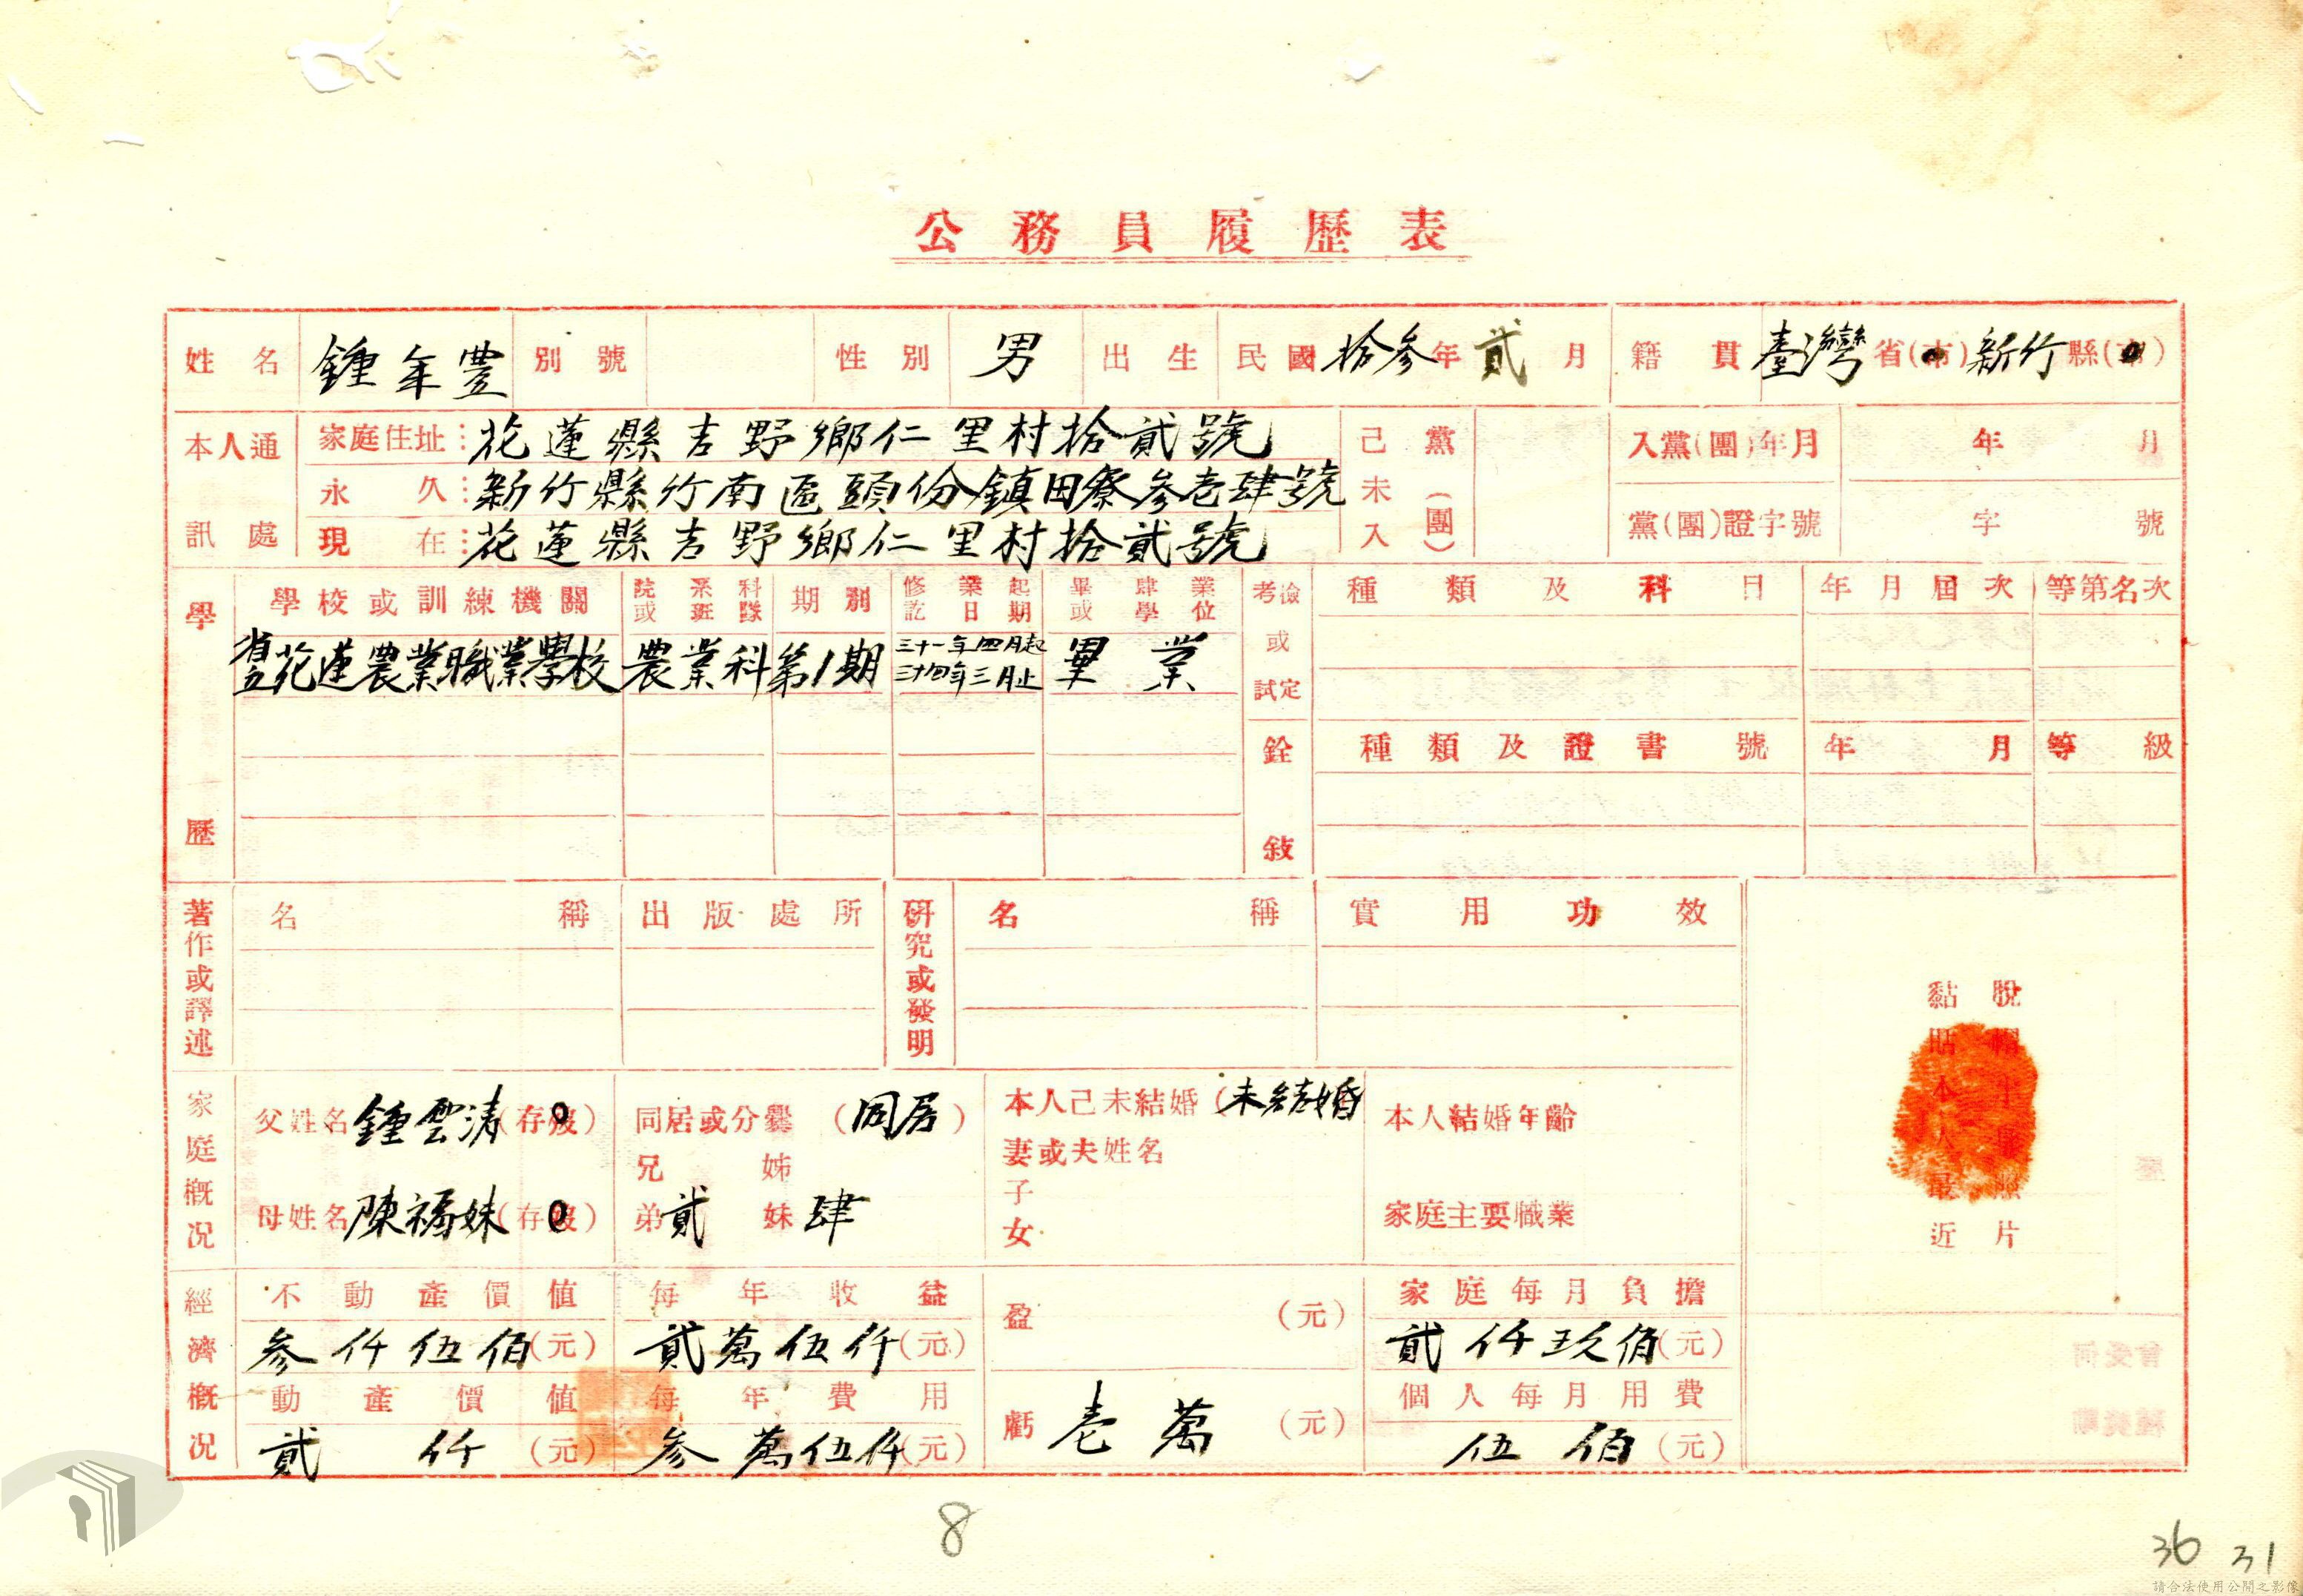 公務員履歷表
姓名 鍾年豐 別號 性別 男 出生 民國拾參年貳月 籍貫 臺灣省(市)新竹縣(市)
本人通訊處
家庭住址：花蓮縣吉野鄉仁里村拾貳號
永久：新竹縣竹南區頭份鎮田寮參壱肆號
現在：花蓮縣吉野鄉仁里村拾貳號
己未入黨(團) 入黨(團)年月 年 月
黨(團)證字號 字 號
學歷
學校或訓練機關 院系科或班隊 期別 修業起訖日期 畢肄業或學位
省立花蓮農業職業學校 農業科 第1期 三十一年四月起 三十四年三月止 畢業
考檢或試定 種類及科目 年月屆次 等第名次
銓敍 種類及證書號 年月 等級
著作或譯述 名稱 出版處所
研究或發明 名稱 實用功效
家庭概況
父姓名 鍾雲濤 (存歿) 同居或分爨 (同居) 本人己未結婚(未結婚 本人結婚年齡
兄 姊 妻或夫姓名
母姓名 陳福妹 (存歿) 弟 貳 妹 肆 子女 家庭主要職業
經濟概況
不動產價值 每年收益 盈 (元) 家庭每月負擔
參仟伍佰(元) 貳萬伍仟(元) 貳仟玖佰(元)
動產價值 每年費用 虧 壱萬 (元) 個人每月用費
貳仟(元) 參萬伍仟(元) 伍佰(元)
黏貼本人最近
脫帽半身照片
8
36 31
請合法使用公開之影像